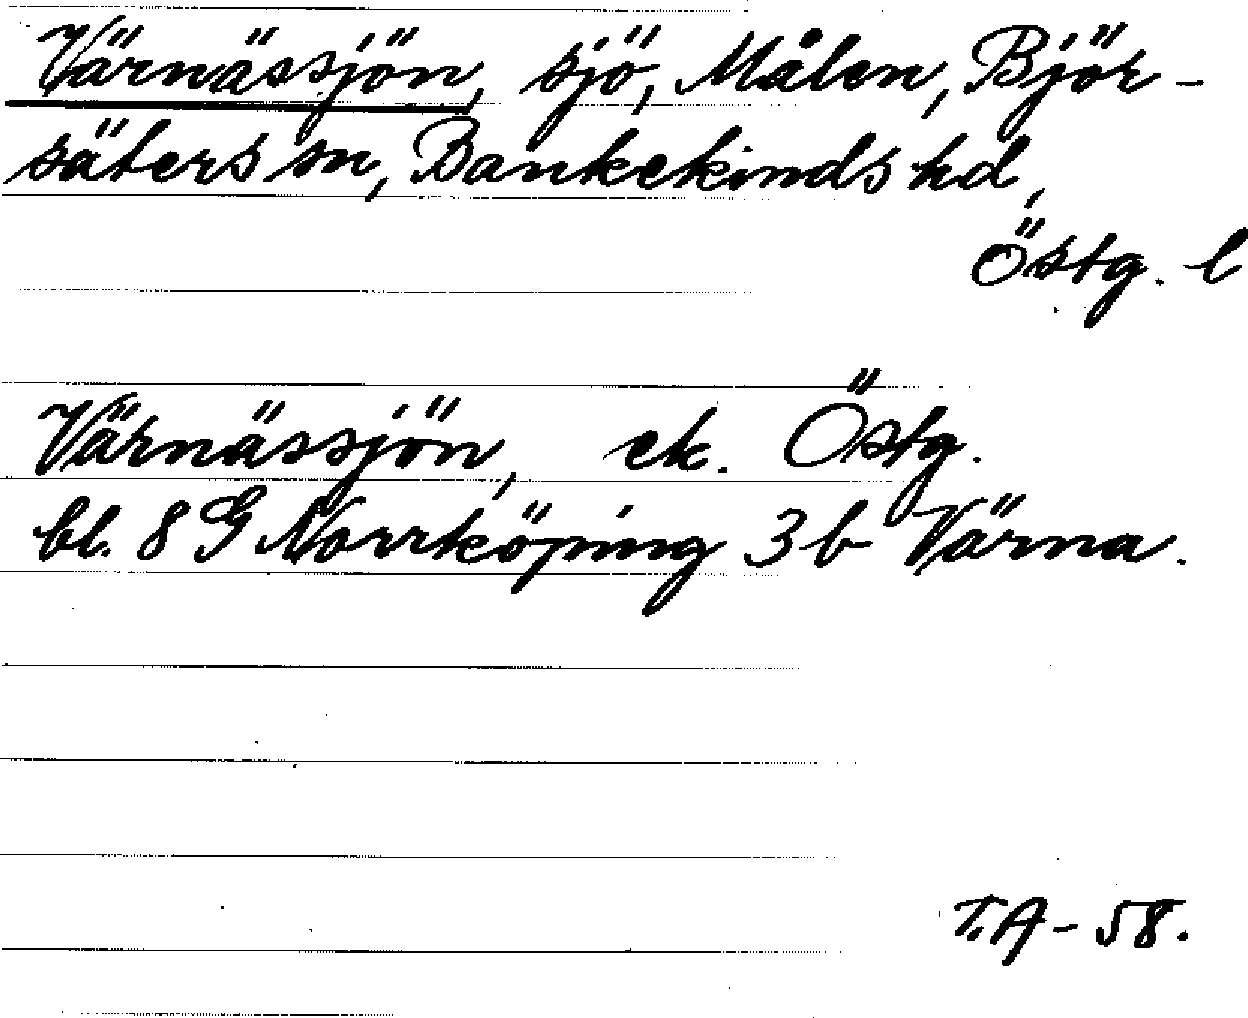 Värnässjön, sjö, Målen, Björ-
säters sn, Bankekinds hd,
Östg. l
Värnässjön, ek. Östg.
bl. 8 G Norrköping 3 b Värna.
T.A - 58.